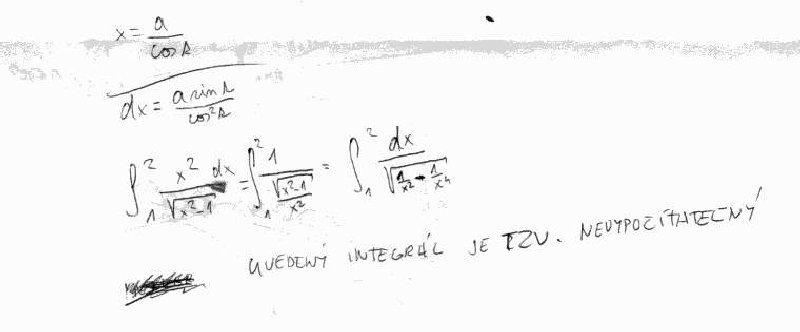 x = a / cos t
dx = a sin t / cos² t
∫₁² x² dx / √(x²-1) = ∫₁² 1 / (√(x²-1) / x²) = ∫₁² dx / √(1/x² - 1/x⁴)
UVEDENÝ INTEGRÁL JE TZV. NEVYPOČITATELNÝ